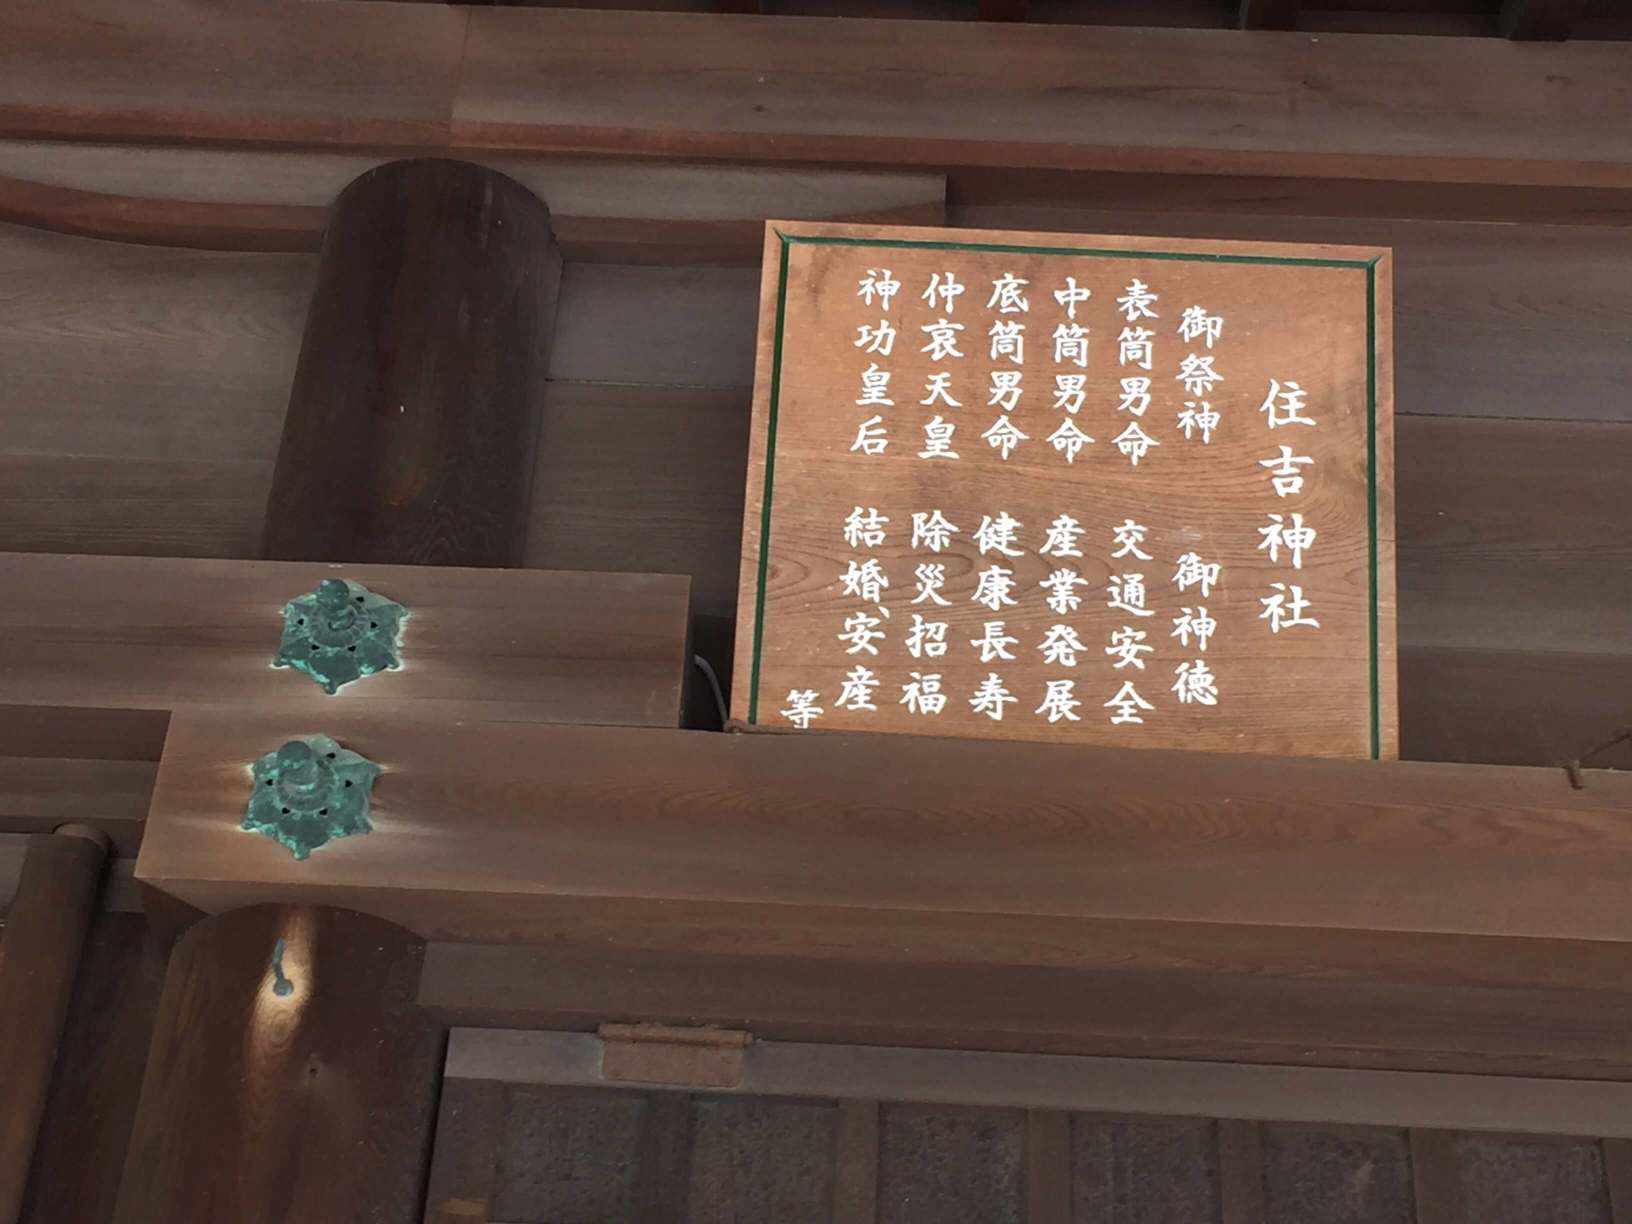 住吉神社
御祭神 御神徳
表筒男命 交通安全
中筒男命 産業発展
底筒男命 健康長寿
仲哀天皇 除災招福
神功皇后 結婚、安産
等